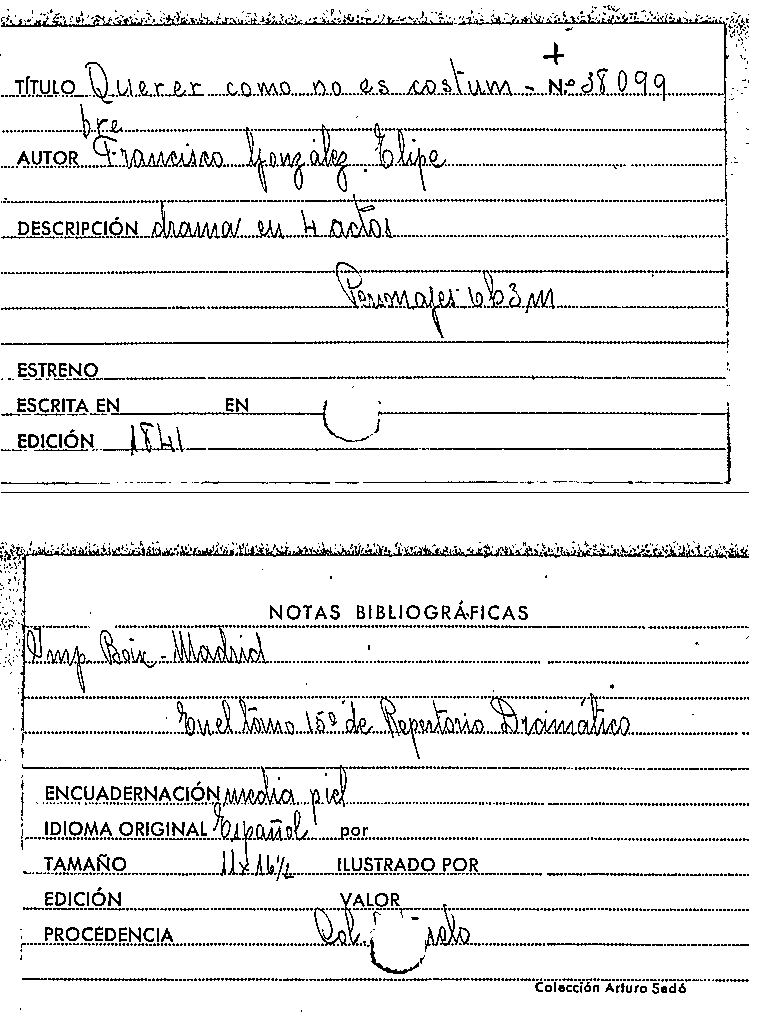 +
TÍTULO Querer como no es costum- Nº 38099
bre
AUTOR Francisco González Elipe
DESCRIPCIÓN drama en 4 actos
Personajes 6 h 3 m
ESTRENO
ESCRITA EN EN
EDICIÓN 1841
NOTAS BIBLIOGRÁFICAS
Imp. Boix - Madrid
En el tomo 15º de Repertorio Dramático
ENCUADERNACIÓN media piel
IDIOMA ORIGINAL Español por
TAMAÑO 11 x 16 1/2 ILUSTRADO POR
EDICIÓN VALOR
PROCEDENCIA Col.
Colección Arturo Sedó